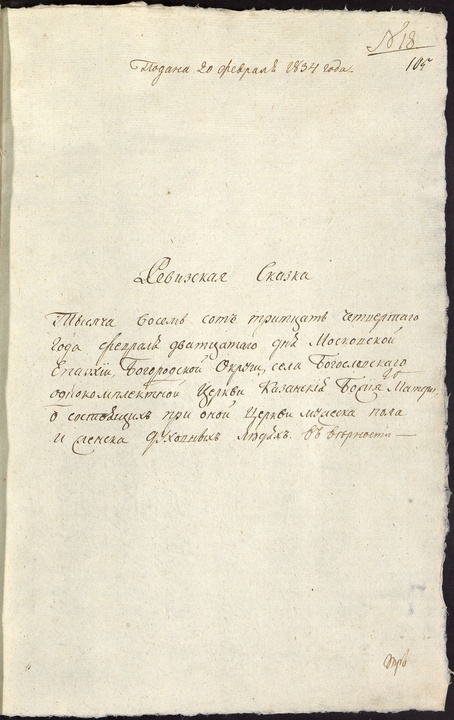 № 18
105
Подана 20 февраля 1834 года.
Ревизская Сказка
Тысяча восемь сотъ тритцать четвертаго
года февраля дватцатаго дня Московской
Епархiи, Богородской Округи, села Богословскаго
однокомплектной Церкви Казанскiя Божiя Матери,
о состоящихъ при оной Церкви мужеска пола
и женска духовныхъ людяхъ. въ вѣрности —